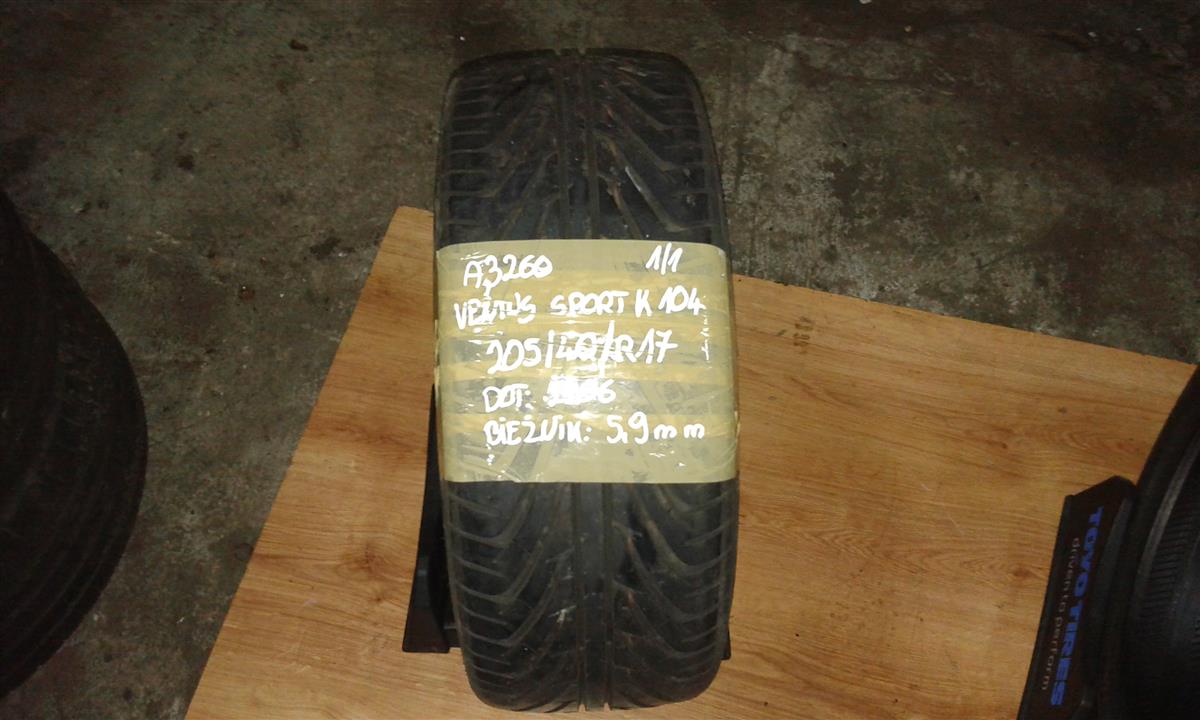 A3260 1/1
VENTUS SPORT K 104
205/40/R17
DOT:
BIEŻNIK: 5,9 mm
TOYO TIRES
driven to perform